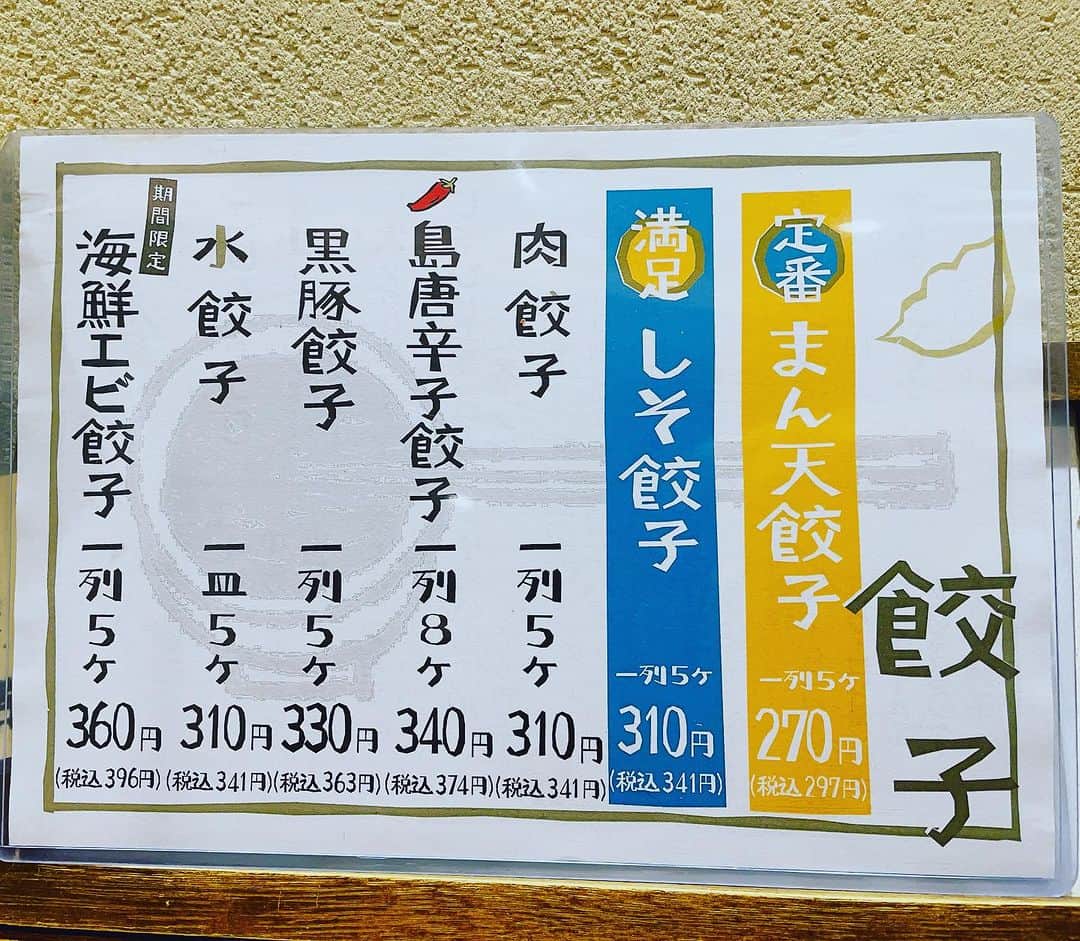 餃子
定番
まん天餃子
一列5ヶ
270円
(税込297円)
満足
しそ餃子
一列5ヶ
310円
(税込341円)
肉餃子
一列5ヶ
310円
(税込341円)
島唐辛子餃子
一列8ヶ
340円
(税込374円)
黒豚餃子
一列5ヶ
330円
(税込363円)
水餃子
一皿5ヶ
310円
(税込341円)
期間限定
海鮮エビ餃子
一列5ヶ
360円
(税込396円)